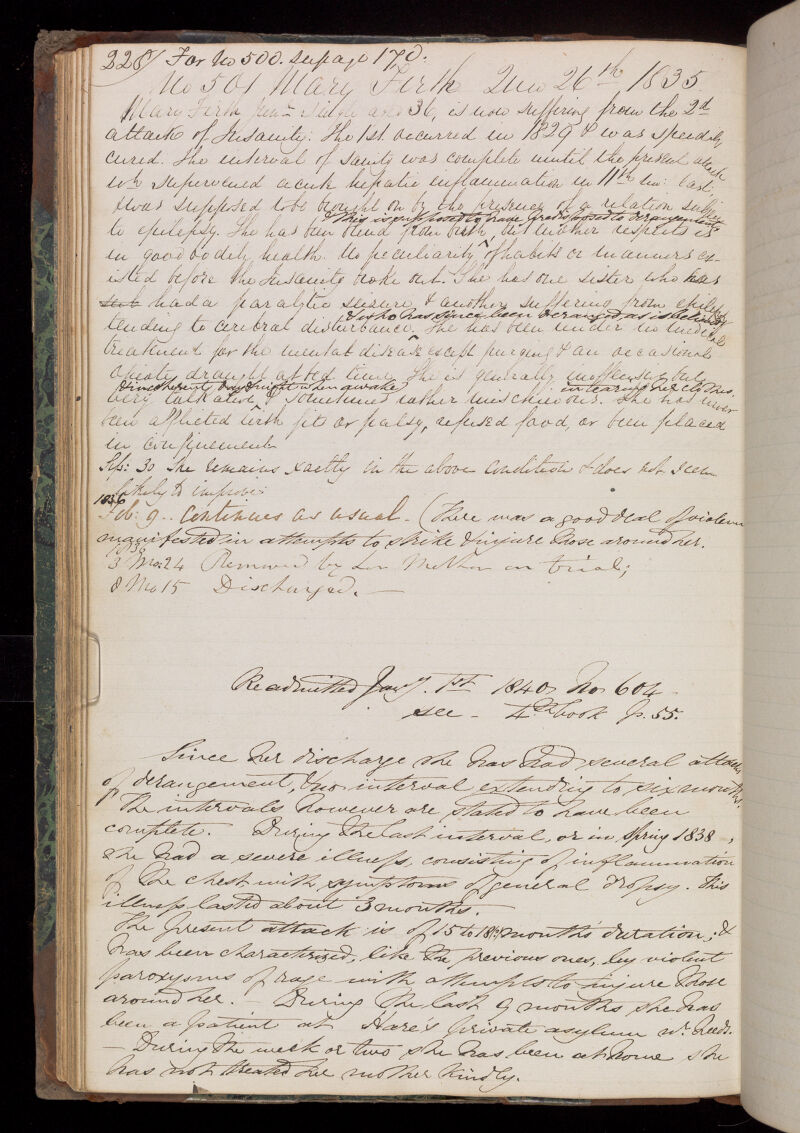 328/ For No 500. see page 170.
No 501 Mary Firth June 26th 1835
Mary Firth Junr Single aged 36, is now suffering from the 2d
attack of Insanity. The 1st occurred in 1829 & was speedily
cured. The interval of sanity was complete until the present attack
wh supervened acute hepatic inflammation in 11th mo: last,
& was supposed to be brought on by the presence of a relation subject
& this is supposed to have predisposed to derangement
to epilepsy. She has been blind from birth, but in other respects is
in good bodily health. No peculiarity of habits or manners ex-
isted before the Insanity broke out. She has one sister who has
had a paralytic seizure, & another suffering from epilepsy
& who has since been deranged as is actually
tending to cerebral disturbance. She has been under no medical
treatment for the mental disease except purging & an occasional
opiate draught at bed time. She is generally inoffensive but
& incoherent, day & night when awake in tearing her clothes.
very talkative, & sometimes rather mischievous. She has never
been afflicted with fits or palsy, refused food, or been placed
in confinement
Sep: 30 She remains exactly in the above condition & does not seem
likely to improve.
1836
Feb: 9.. Continues as usual. (There was a good deal of violence
manifested in attempts to strike & injure those around her.
3 Mo: 24 Removed by her Mother on trial;
8 Mo 15 Discharged. —
Readmitted Jany. 1st 1840 No 604
see - 4th book p. 55.
Since her discharge she has had several attacks
of derangement, & no interval extending to six months.
The intervals however are stated to have been
complete. During the last interval, or in Spring 1838,
she had a severe illness, consisting of inflammation
of the chest with symptoms of general dropsy. This
illness lasted about 3 months.
The present attack is of 15 to 18 months duration; &
has been characterized, like the previous ones, by violent
paroxysms of rage with attempts to injure those
around her. — During the last 9 months she has
been a patient at Hare's private asylum nr. Leeds.
— During the week or two she has been at home she
has not treated her mother kindly.